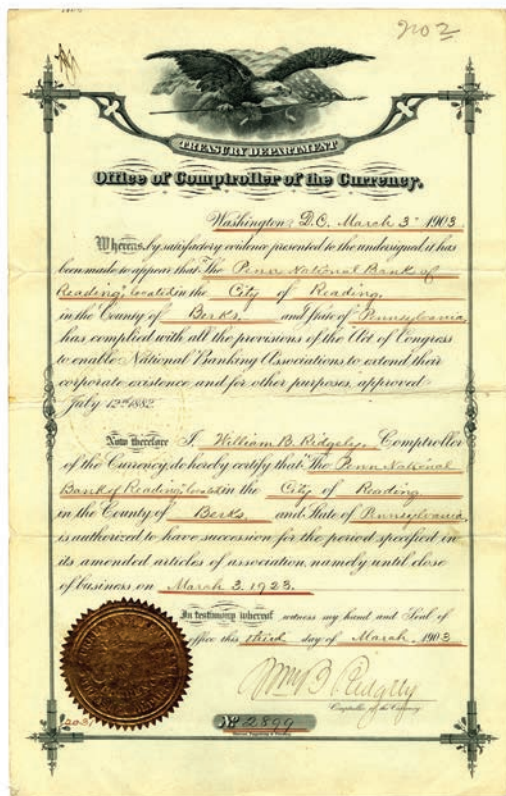 No 2
TREASURY DEPARTMENT
Office of Comptroller of the Currency.
Washington, D.C. March 3d 1903
Whereas, by satisfactory evidence presented to the undersigned, it has
been made to appear that "The Penn National Bank of
Reading," located in the City of Reading,
in the County of Berks, and State of Pennsylvania,
has complied with all the provisions of the "Act of Congress
to enable National Banking Associations to extend their
corporate existence and for other purposes," approved
July 12th 1882.
Now therefore I, William B. Ridgely, Comptroller
of the Currency, do hereby certify that "The Penn National
Bank of Reading," located in the City of Reading
in the County of Berks, and State of Pennsylvania,
is authorized to have succession for the period specified in
its amended articles of association, namely until close
of business on March 3, 1923.
In testimony whereof witness my hand and Seal of
office this third day of March, 1903
Wm B Ridgely
Comptroller of the Currency.
No 2899